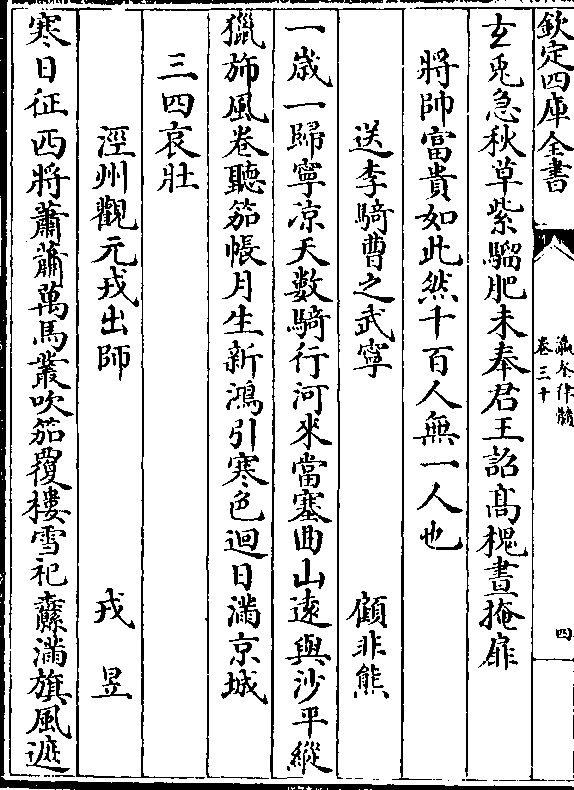 欽定四庫全書
瀛奎律髓
卷三十
四
玄兎急秋草紫騮肥未奉君王詔髙槐晝掩扉
將帥富貴如此然千百人無一人也
送李騎曹之武寧 顧非熊
一歳一歸寧凉天數騎行河來當塞曲山逺與沙平縱
獵斾風卷聽笳帳月生新鴻引寒色迴日滿京城
三四哀壯
涇州觀元戎出師 戎昱
寒日征西將蕭蕭萬馬叢吹笳覆樓雪祀纛滿旗風遮